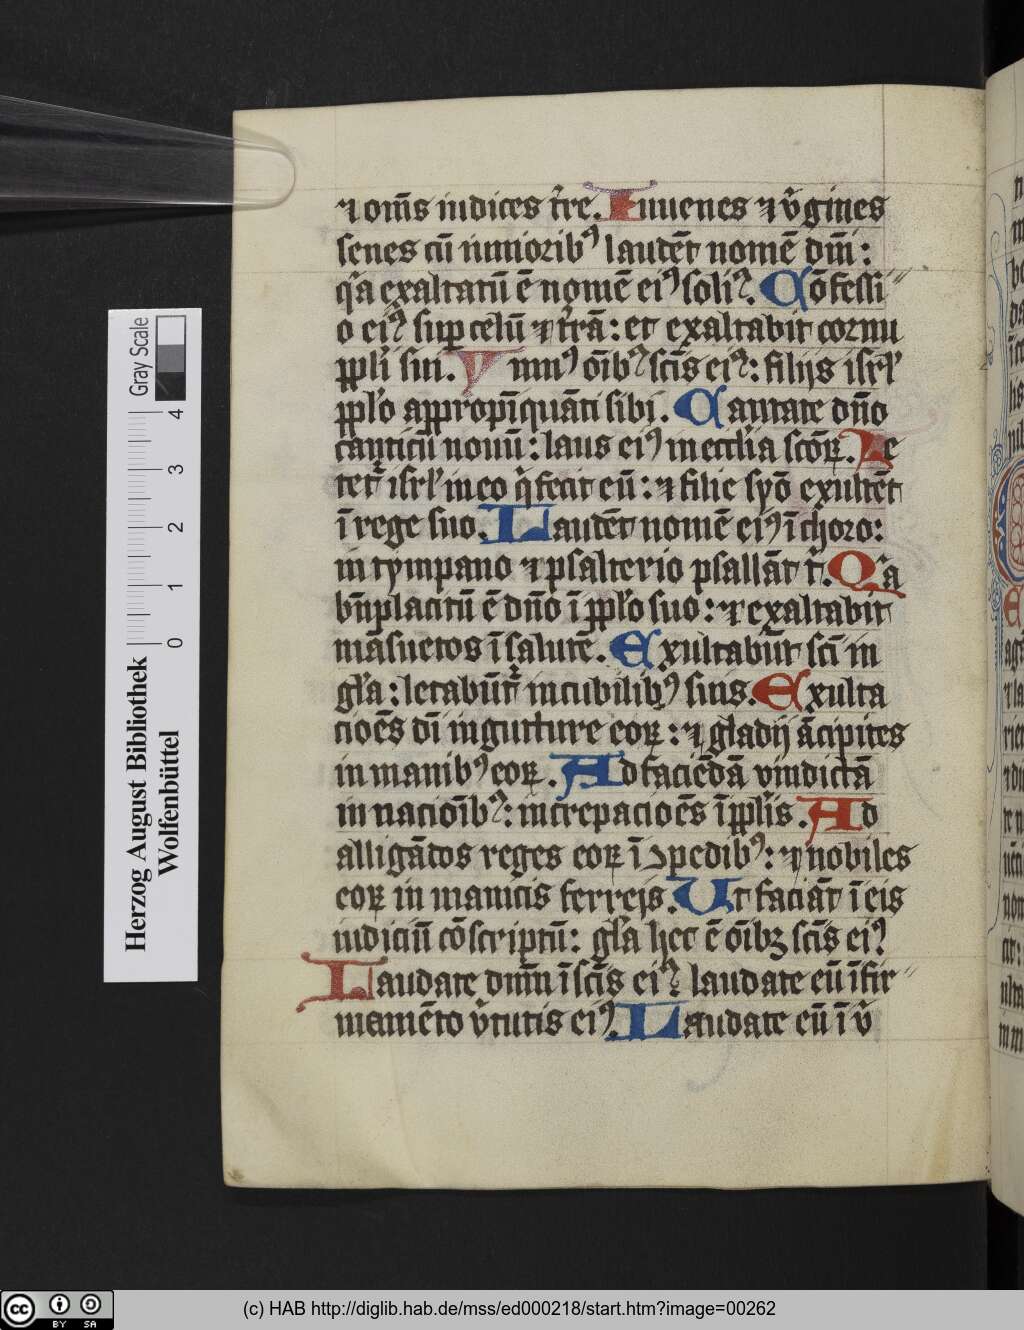 ⁊ om̄s iudices t̉re. Iuuenes ⁊ v̉gines
senes cū iunioribꝰ laudēt nomē dm̄i:
q̉a exaltatū ē nomē eiꝰ soliꝰ. Cōfessi
o eiꝰ suꝑ celū ⁊ t̉rā: et exaltabit cornu
ppl̉i sui. Ymnꝰ oībꝰ scīs eiꝰ: filijs isrl̉
ppl̉o appropīquāti sibi. Cantate dn̄o
canticū nouū: laus eiꝰ in eccl̉ia scōꝝ. Le
tet̉ isrl̉ in eo q̉ fecit eū: ⁊ filie syō exultēt
ī rege suo. Laudēt nomē eiꝰ ī choro:
in tympano ⁊ psalterio psallāt ẜ. Qa
bn̄placitū ē dn̄o ī ppl̉o suo: ⁊ exaltabit
māsuetos ī salutē. Exultabūt scī in
gl̉a: letabūt̉ in cubilibꝰ suis. Exulta
cioēs dī in gutture eoꝝ: ⁊ gladij ācipites
in manibꝰ eoꝝ. Ad faciēdā vindictā
in nacioībꝰ: increpacioēs ī ppl̉is. Ad
alligādos reges eoꝝ ī ꝯpedibꝰ: ⁊ nobiles
eoꝝ in manicis ferreis. Ut faciāt ī eis
iudiciū cōscriptū: gl̉a hec ē oībꝫ scīs eiꝰ
Laudate dn̄m ī scīs eiꝰ laudate eū ī fir
mamēto v̉tutis eiꝰ. Laudate eū ī v̉
Gray Scale
4
3
2
1
0
Herzog August Bibliothek
Wolfenbüttel
cc BY SA
(c) HAB http://diglib.hab.de/mss/ed000218/start.htm?image=00262